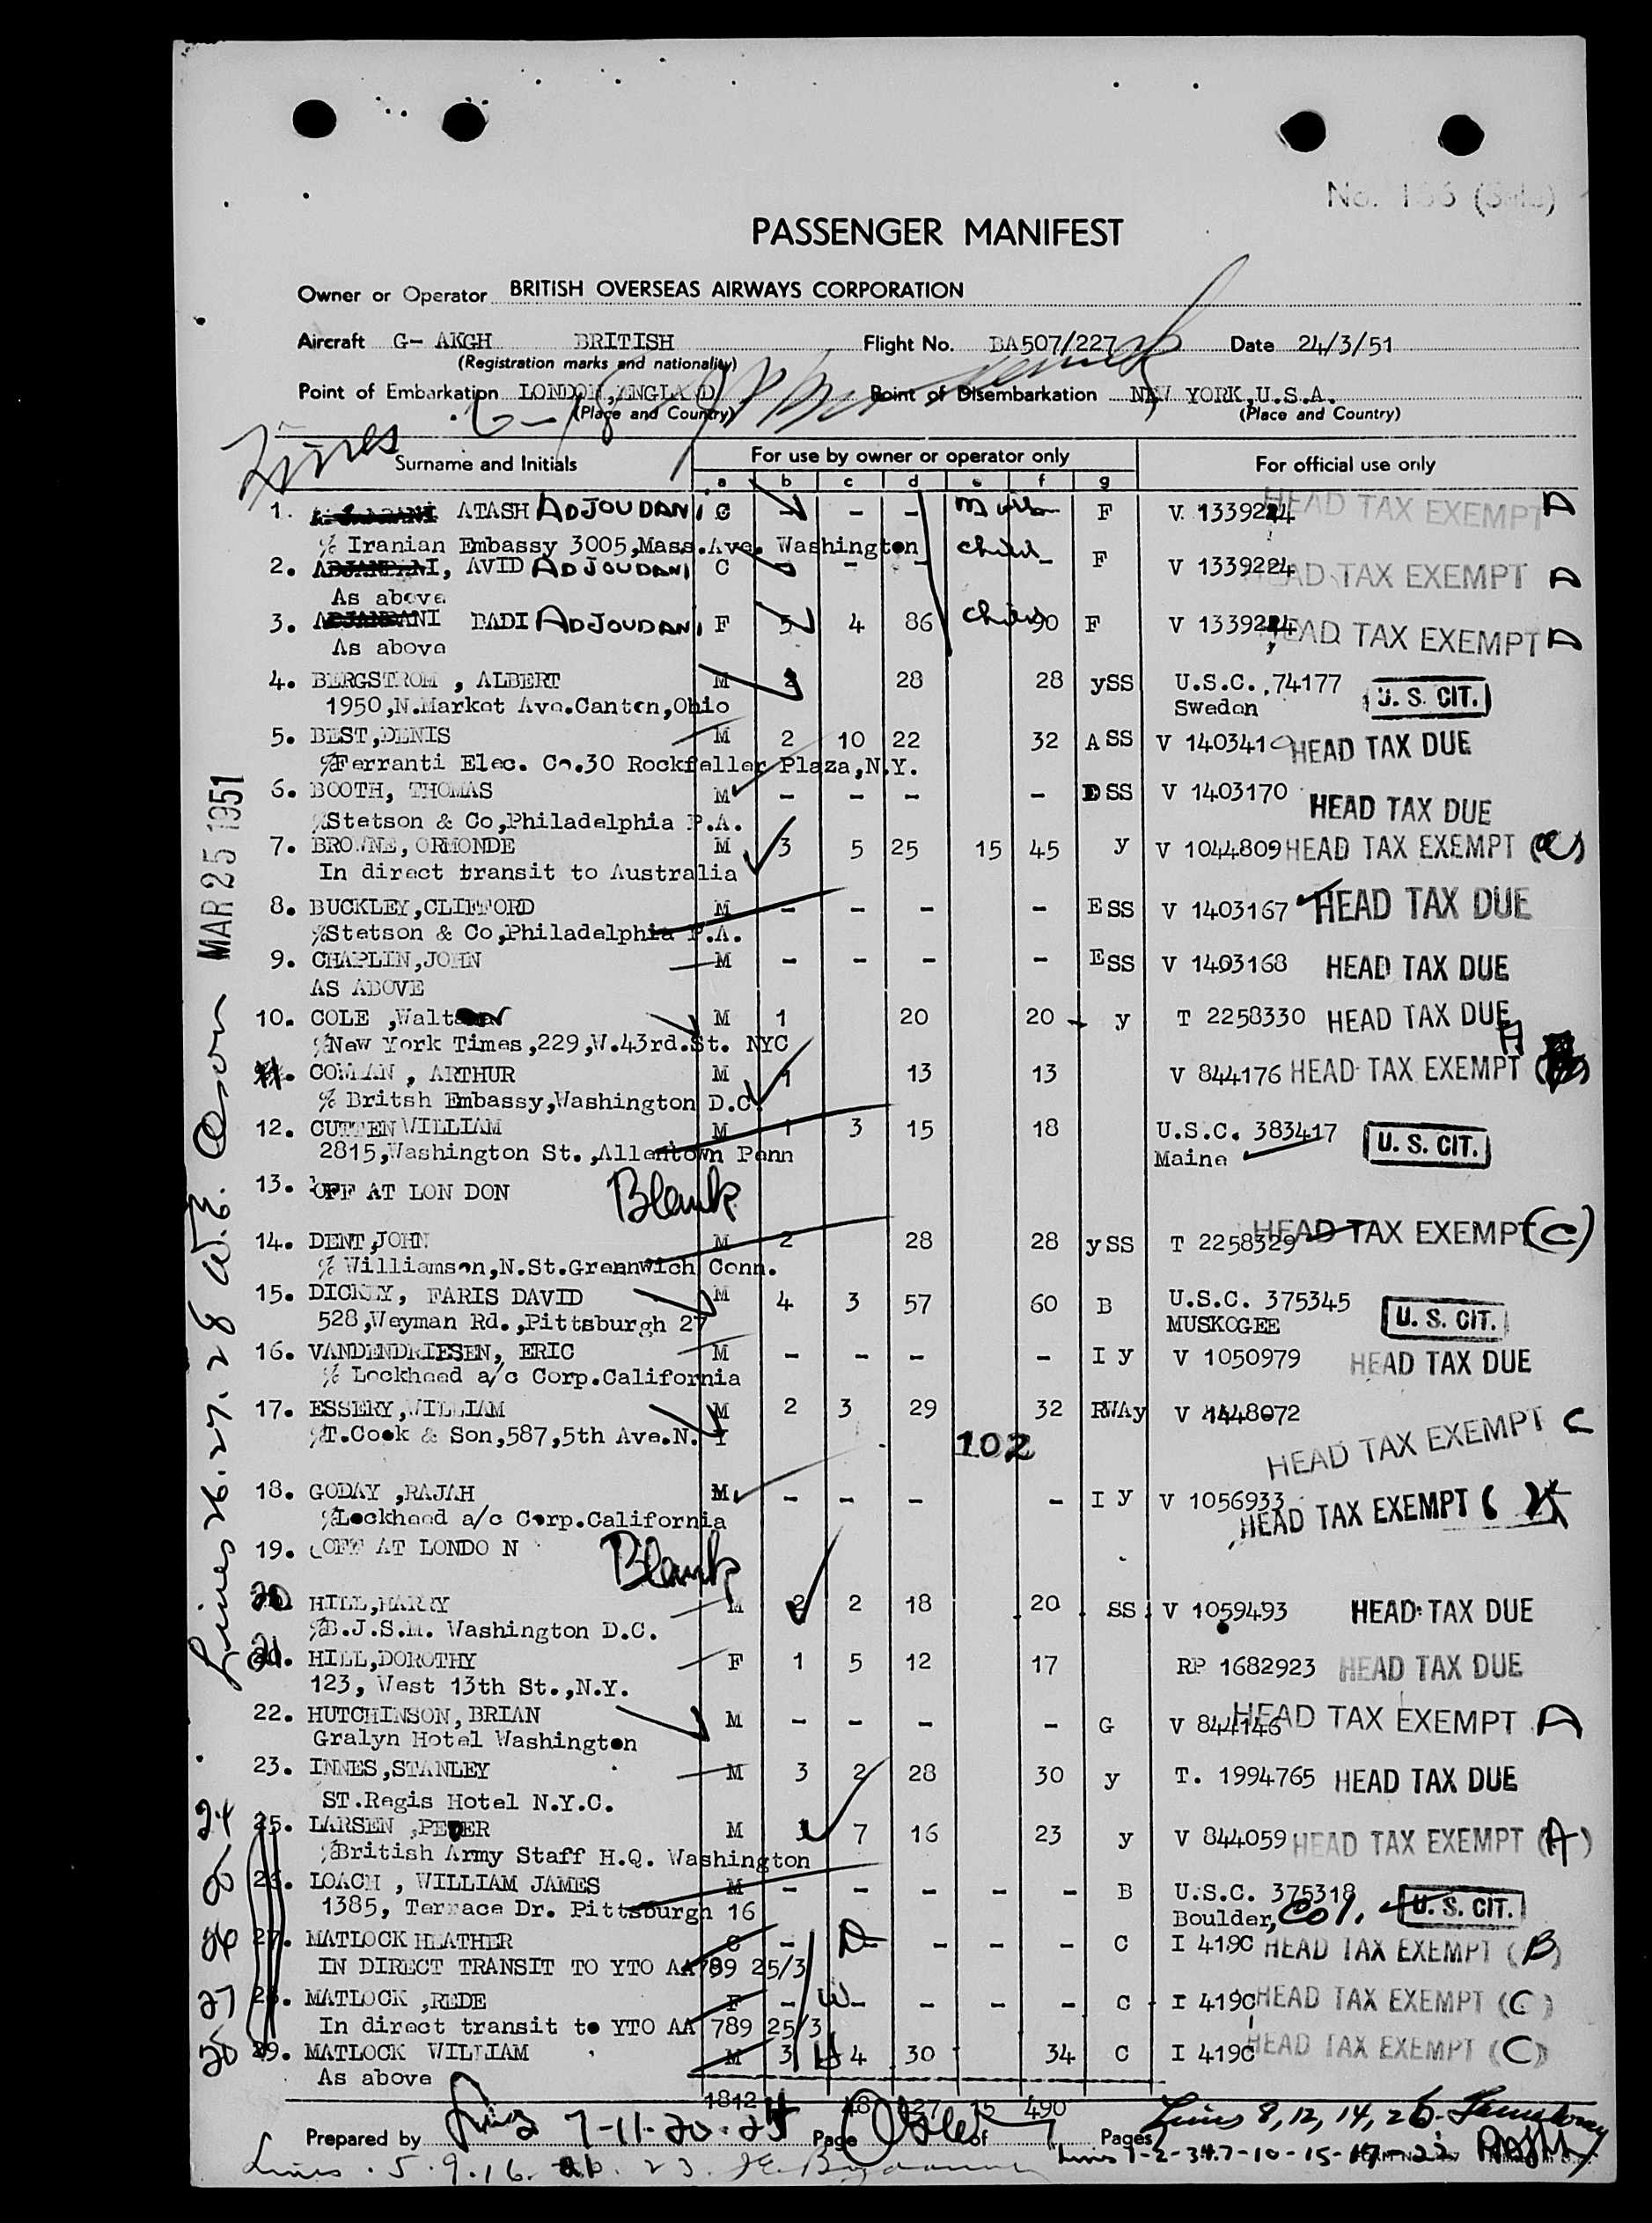 PASSENGER MANIFEST
Owner or Operator BRITISH OVERSEAS AIRWAYS CORPORATION
Aircraft G- AKGH BRITISH Flight No. BA507/227 Date 24/3/51
(Registration marks and nationality)
Point of Embarkation LONDON,ENGLAND Point of Disembarkation NEW YORK,U.S.A.
(Place and Country) (Place and Country)
Lines
Surname and Initials For use by owner or operator only For official use only
a b c d e f g
1. ATASH ADJOUDANI C - - - F V 1339224 HEAD TAX EXEMPT A
% Iranian Embassy 3005,Mass.Ave. Washington
2. AVID ADJOUDANI C - - - child - F V 1339224 HEAD TAX EXEMPT A
As above
3. BADI ADJOUDANI F 3 4 86 child 90 F V 1339224 HEAD TAX EXEMPT A
As above
4. BERGSTROM , ALBERT M 2 28 28 ySS U.S.C.,74177 U. S. CIT.
1950,N.Market Ave.Canton,Ohio Sweden
5. BEST,DENIS M 2 10 22 32 A SS V 1403419 HEAD TAX DUE
%Ferranti Elec. Co.30 Rockfeller Plaza,N.Y.
6. BOOTH, THOMAS M - - - - SS V 1403170 HEAD TAX DUE
%Stetson & Co,Philadelphia P.A.
7. BROWNE, ORMONDE M 3 5 25 15 45 y V 1044809 HEAD TAX EXEMPT
In direct transit to Australia
8. BUCKLEY,CLIFFORD M - - - - E SS V 1403167 HEAD TAX DUE
%Stetson & Co,Philadelphia P.A.
9. CHAPLIN,JOHN M - - - - E SS V 1403168 HEAD TAX DUE
AS ABOVE
10. COLE ,Walter M 1 20 20 y T 2258330 HEAD TAX DUE
%New York Times,229,W.43rd.St. NYC
11. COWLAN , ARTHUR M 1 13 13 V 844176 HEAD TAX EXEMPT
% Britsh Embassy,Washington D.C.
12. CUTTEN WILLIAM M 1 3 15 18 U.S.C. 383417 U. S. CIT.
2815,Washington St.,Allentown Penn Maine
13. OFF AT LON DON Blank
14. DENT,JOHN M 2 28 28 ySS T 2258329 HEAD TAX EXEMPT (C)
% Williamson,N.St.Greenwich Conn.
15. DICKEY, FARIS DAVID M 4 3 57 60 B U.S.C. 375345 U. S. CIT.
528,Weyman Rd.,Pittsburgh 27 MUSKOGEE
16. VANDENDRIESEN, ERIC M - - - - I y V 1050979 HEAD TAX DUE
% Lockheed a/c Corp.California
17. ESSERY,WILLIAM M 2 3 29 32 RWAy V 1448072
%T.Cook & Son,587,5th Ave.N.Y 102 HEAD TAX EXEMPT C
18. GODAY ,RAJAH M - - - - I y V 1056933
%Lockheed a/c Corp.California HEAD TAX EXEMPT
19. OFF AT LONDO N Blank
20. HILL,HARRY M 2 2 18 20 SS V 1059493 HEAD TAX DUE
%B.J.S.M. Washington D.C.
21. HILL,DOROTHY F 1 5 12 17 RP 1682923 HEAD TAX DUE
123, West 13th St.,N.Y.
22. HUTCHINSON, BRIAN M - - - - G V 844146 HEAD TAX EXEMPT A
Gralyn Hotel Washington
23. INNES,STANLEY M 3 2 28 30 y T. 1994765 HEAD TAX DUE
ST.Regis Hotel N.Y.C.
24 25. LARSEN ,PETER M 1 7 16 23 y V 844059 HEAD TAX EXEMPT (A)
%British Army Staff H.Q. Washington
26. LOACH , WILLIAM JAMES M - - - - - B U.S.C. 375318 U. S. CIT.
1385, Terrace Dr. Pittsburgh 16 Boulder, Col.
26 27. MATLOCK HEATHER C - D - - - C I 419C HEAD TAX EXEMPT (B)
IN DIRECT TRANSIT TO YTO AA789 25/3
27 28. MATLOCK ,REDE F - W - - - - C I 419C HEAD TAX EXEMPT (C)
In direct transit to YTO AA 789 25/3
28 29. MATLOCK WILLIAM M 3 H 4 30 34 C I 419C HEAD TAX EXEMPT (C)
As above
1812 48 427 15 490
Prepared by Page of Pages
Lines 7-11-20-25
Lines 8, 12, 14, 26
Lines 1-2-3-4-7-10-15-17-22
Lines 5. 9. 16. 21. 23.
MAR 25 1951
Lines 26. 27. 28 W.E.